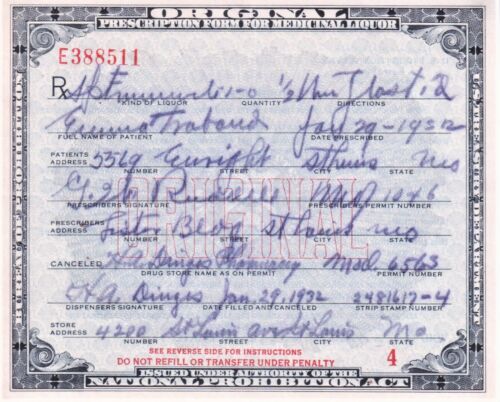 ORIGINAL
PRESCRIPTION FORM FOR MEDICINAL LIQUOR
E388511
Rx Sp Frumenti 1-0 1/2
KIND OF LIQUOR QUANTITY DIRECTIONS
Traband Jan 29-1932
FULL NAME OF PATIENT DATE PRESCRIBED
PATIENTS ADDRESS 5569 Enright St Louis Mo
NUMBER STREET CITY STATE
ORIGINAL
PRESCRIBERS SIGNATURE PRESCRIBERS PERMIT NUMBER
PRESCRIBERS ADDRESS Lister Bldg St Louis Mo
NUMBER STREET CITY STATE
CANCELED H.A. Dinges Pharmacy 6563
DRUG STORE NAME AS ON PERMIT PERMIT NUMBER
H.A. Dinges Jan. 29, 1932 2481617-4
DISPENSERS SIGNATURE DATE FILLED AND CANCELED STRIP STAMP NUMBER
STORE ADDRESS 4200 St Louis ave St Louis Mo
NUMBER STREET CITY STATE
SEE REVERSE SIDE FOR INSTRUCTIONS
DO NOT REFILL OR TRANSFER UNDER PENALTY
4
ISSUED UNDER AUTHORITY OF THE
NATIONAL PROHIBITION ACT